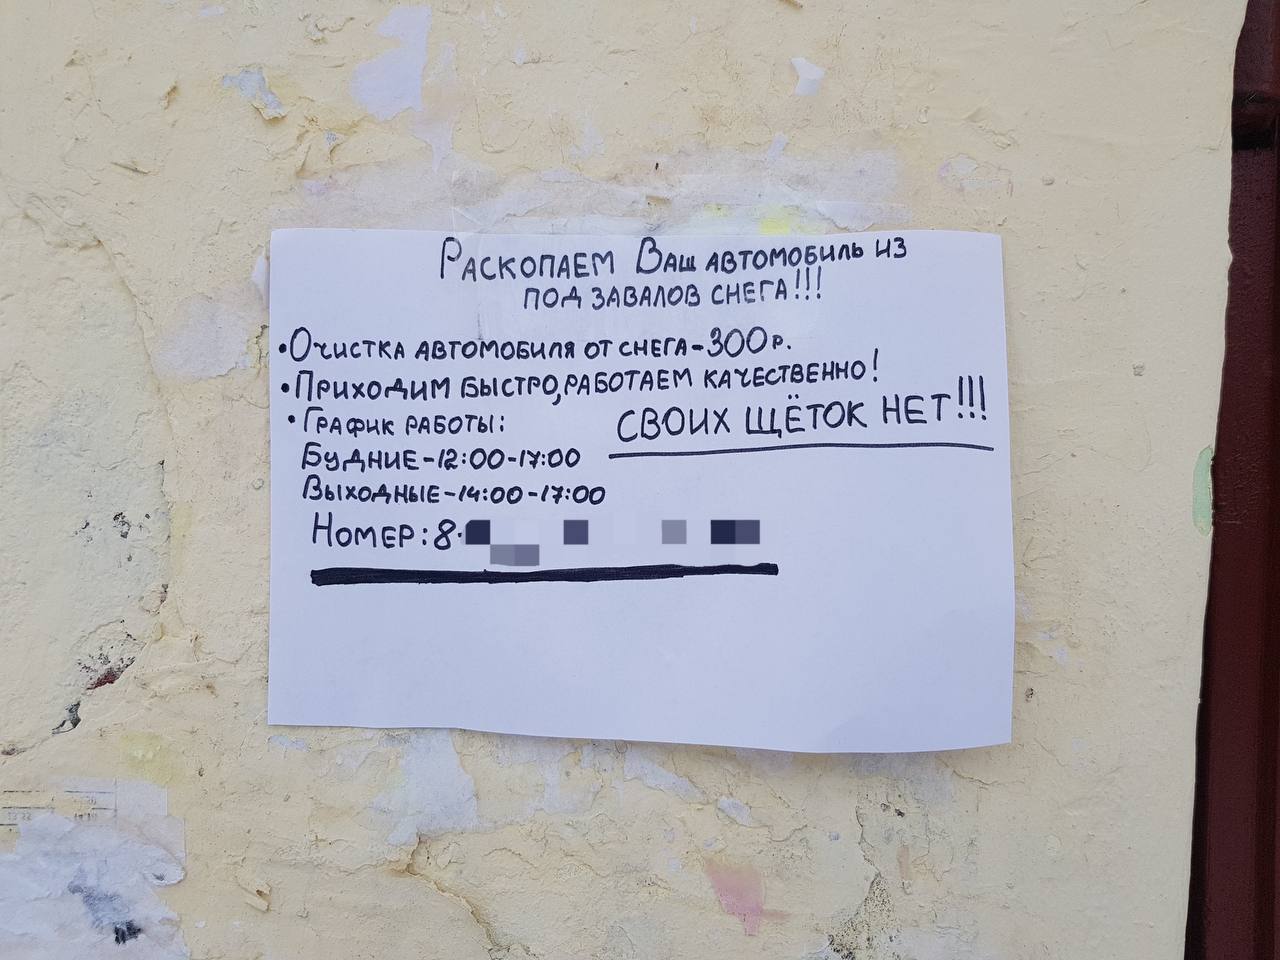 Раскопаем Ваш автомобиль из
под завалов снега!!!
•Очистка автомобиля от снега-300р.
•Приходим быстро,работаем качественно!
•График работы:
СВОИХ ЩЁТОК НЕТ!!!
Будние-12:00-17:00
Выходные-14:00-17:00
Номер:8-